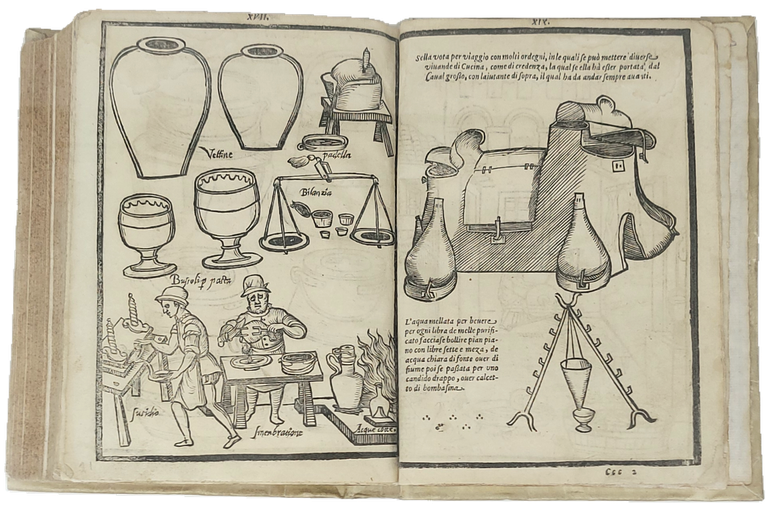 XVII.
Vettine
padella
Bilanzia
Busoli p pasta
susidio
smembratione
Acque cotte
XIX.
Sella vota per viaggio con molti ordegni, in le quali se può mettere diverse
vivande di Cucina, come di credenza, la qual se ella hà esser portata dal
Caval grosso, con laiutante di sopra, il qual ha da andar sempre avāti.
L'aqua mellata per bevere
per ogni libra de melle purifi-
cato facciase bollire pian pia-
no con libre sette e meza, de
acqua chiara di fonte over di
fiume poi se passata per uno
candido drappo, over calcet-
to di bombasina
Ccc 2